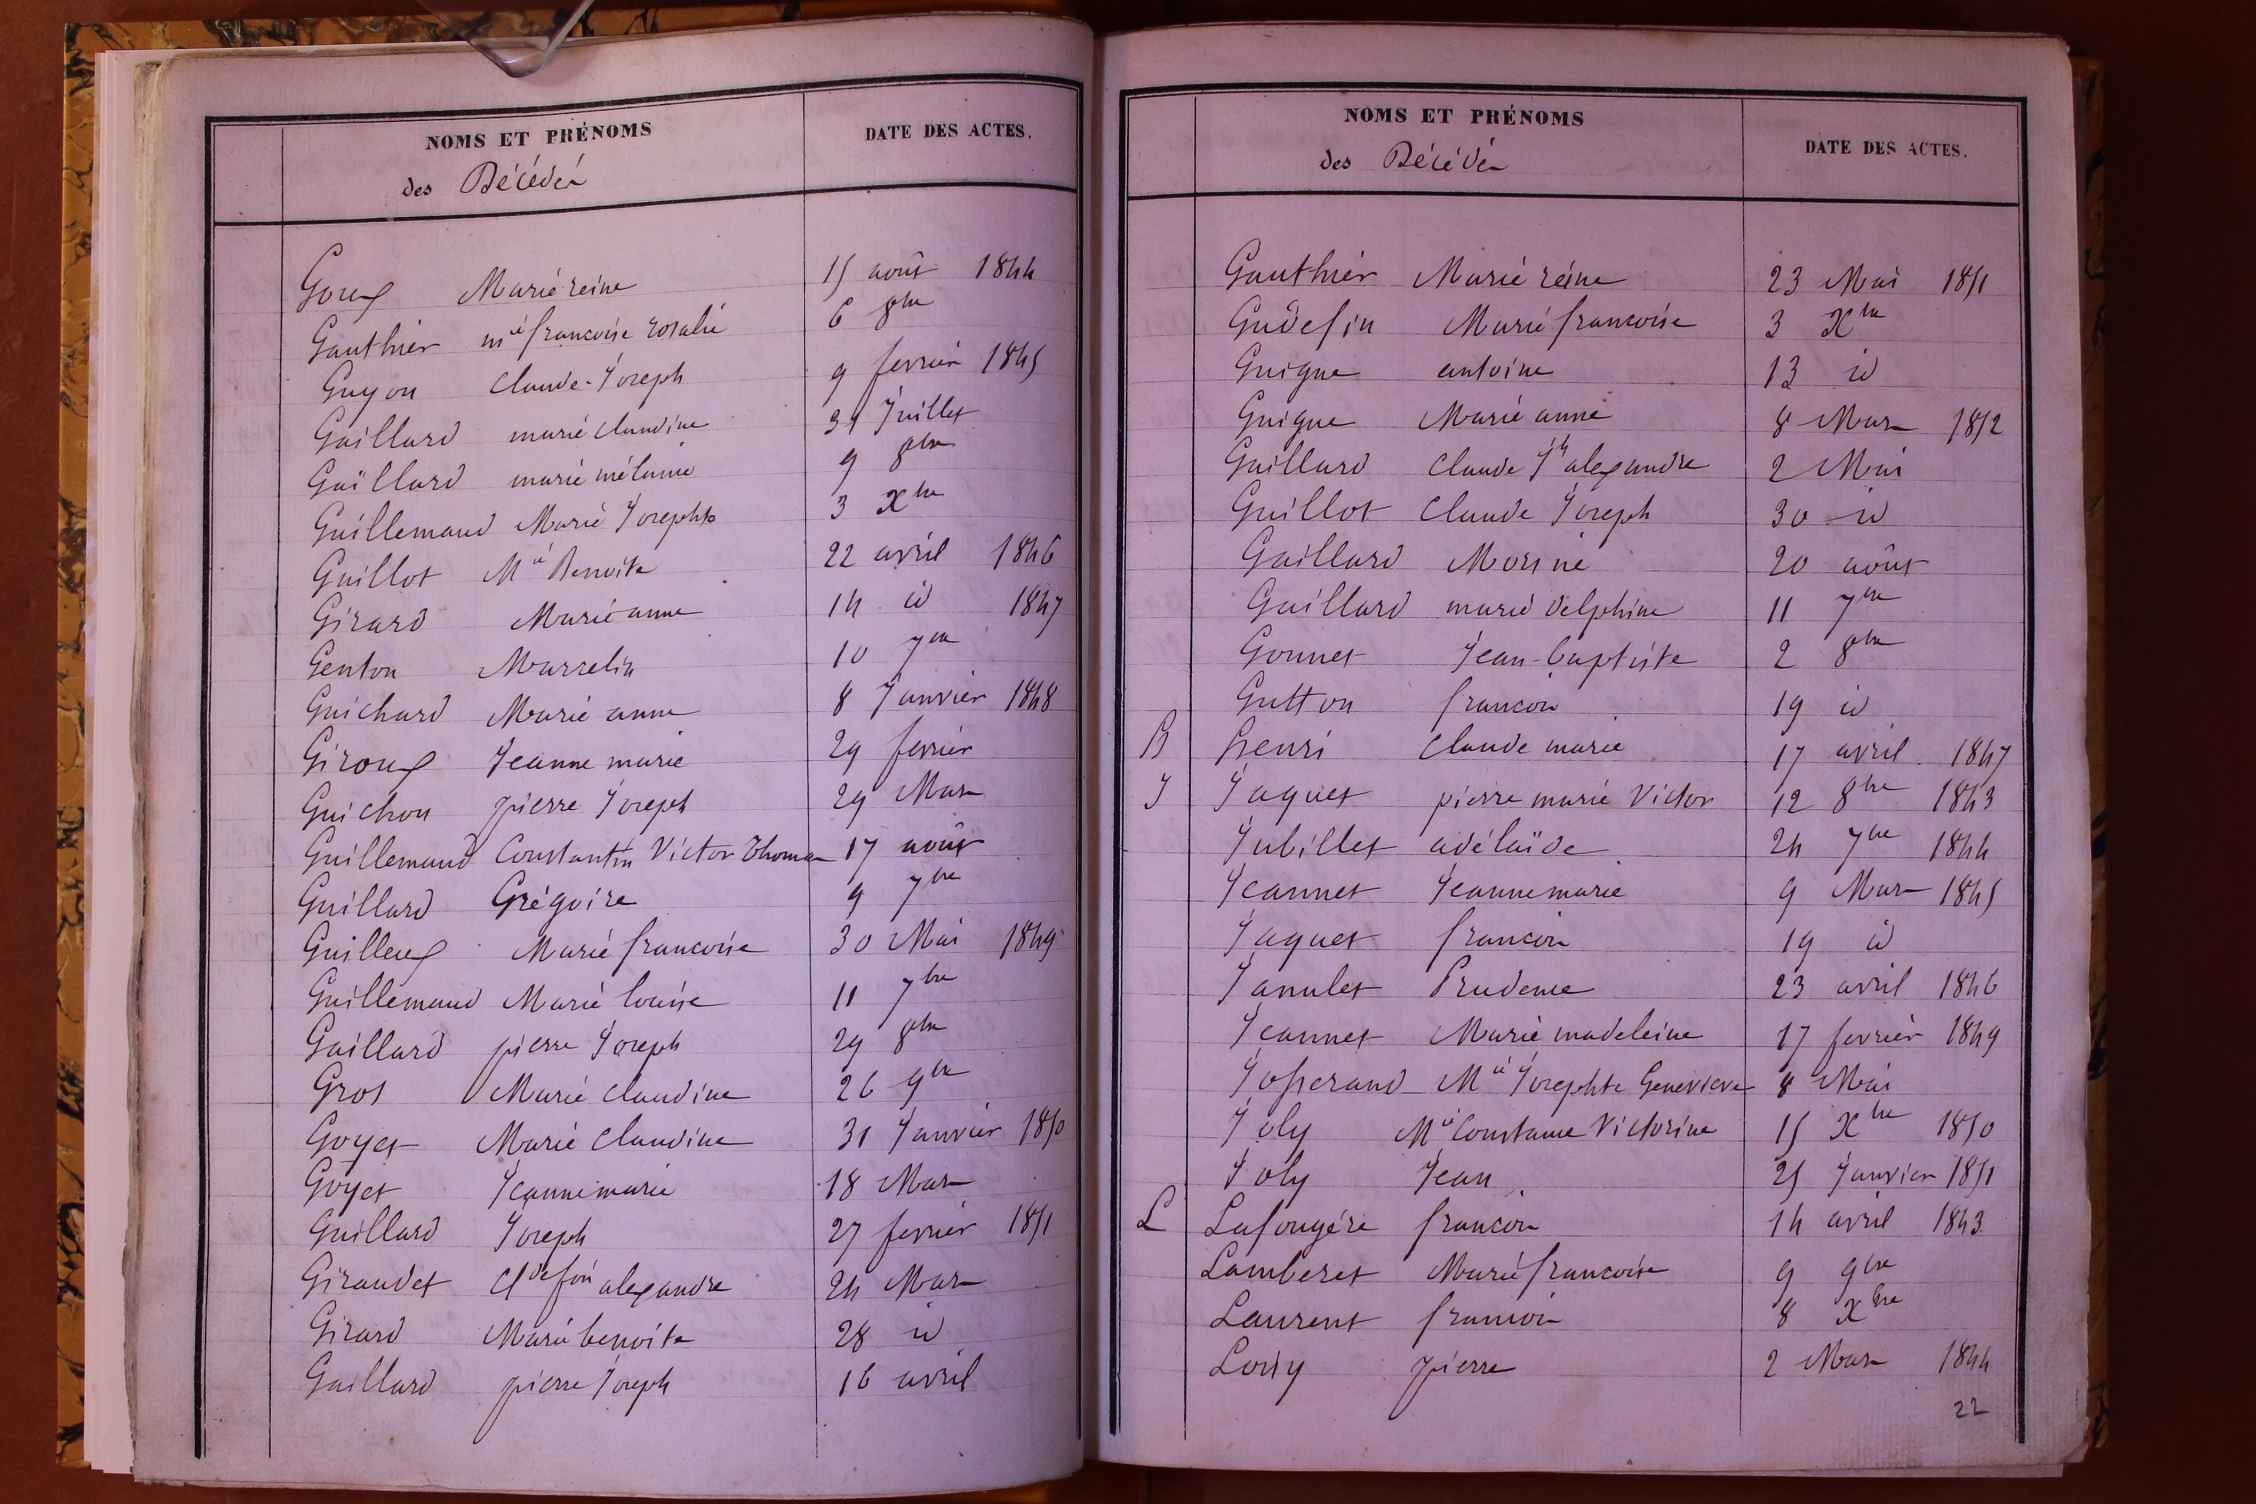 NOMS ET PRÉNOMS DATE DES ACTES.
des Décédés
Goux Marie reine 15 août 1844
Gauthier mie francoise rosalie 6 8bre
Guyon Claude-Joseph 9 fevrier 1845
Gaillard marie claudine 31 Juillet
Gaillard marie mélanie 9 8bre
Guillemaud Marie Josephte 3 Xbre
Guillot Mie Benoite 22 avril 1846
Girard Marie anne 14 id 1847
Genton Marcelin 10 7bre
Guichard Marie anne 8 Janvier 1848
Giroux Jeanne marie 29 fevrier
Guichon pierre Joseph 29 Mars
Guillemaud Constantin Victor Thomas 17 août
Guillard Grégoire 9 7bre
Guilleux Marie francoise 30 Mai 1849
Guillemaud Marie louise 11 7bre
Gaillard pierre Joseph 29 8bre
Gros Marie Claudine 26 9bre
Goyet Marie Claudine 31 Janvier 1850
Goyet Jeanne marie 18 Mars
Guillard Joseph 27 fevrier 1851
Giraudet Clde fois alexandre 24 Mars
Girard Marie benoite 28 id
Gaillard pierre Joseph 16 avril
NOMS ET PRÉNOMS DATE DES ACTES.
des Décédés
Gauthier Marie réine 23 Mai 1851
Gudefin Marie francoise 3 Xbre
Guigue antoine 13 id
Guigue Marie anne 8 Mars 1852
Guillard Claude Jh alexandre 2 Mai
Guillot Claude Joseph 30 id
Gaillard 20 août
Gaillard marie delphine 11 7bre
Gonnet Jean-baptiste 2 8bre
Gutton francois 19 id
henri Claude marie 17 avril 1847
J Jaquet pierre marie Victor 12 8bre 1843
Jubillet adélaïde 24 7bre 1844
Jeannet Jeanne marie 9 Mars 1845
Jaquet francois 19 id
Janulet Prudence 23 avril 1846
Jeannet Marie madeleine 17 fevrier 1849
Josserand Mie Josephte Genevieve 8 Mai
Joly Mie Constance Victorine 15 Xbre 1850
Joly Jean 25 Janvier 1851
L Lafougére francois 14 avril 1843
Lamberet Marie francoise 9 9bre
Laurent francois 8 Xbre
Loisy pierre 2 Mars 1844
22